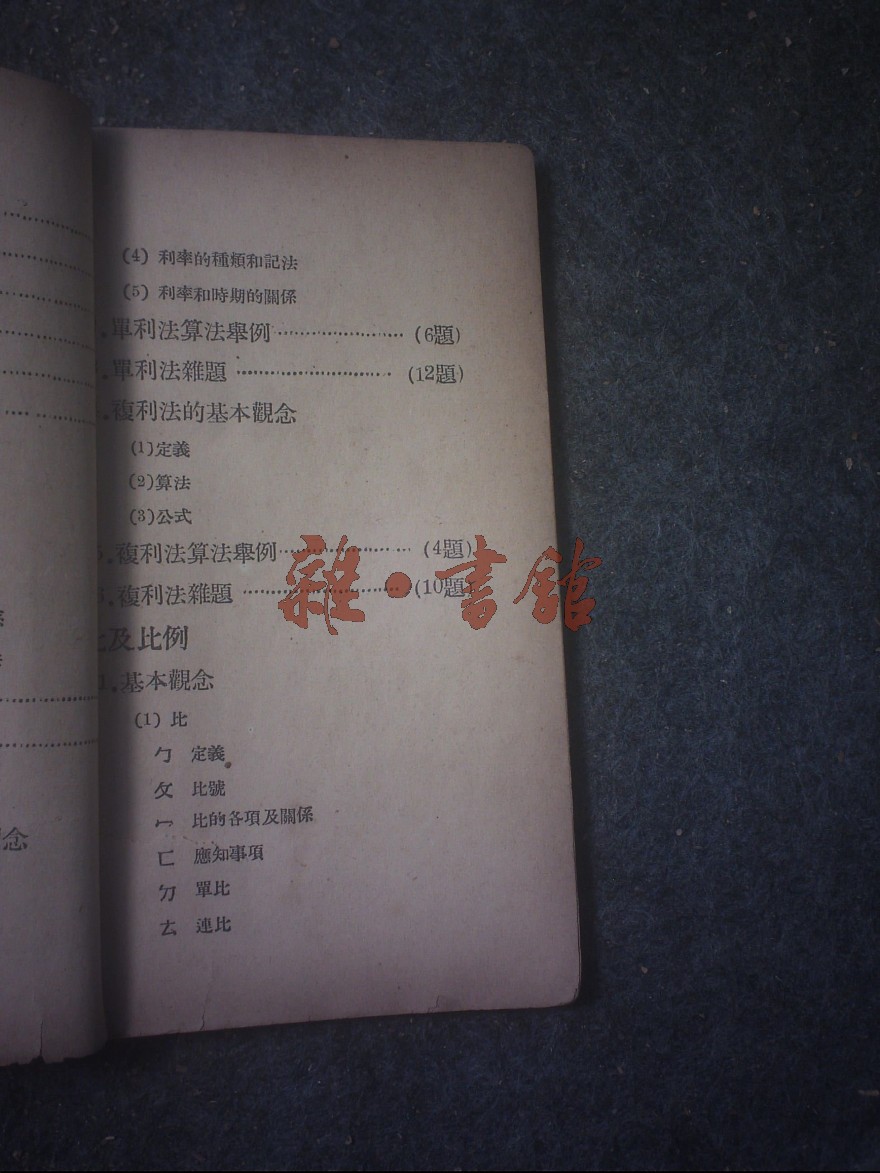 (4) 利率的種類和記法
(5) 利率和時期的關係
.單利法算法舉例 ………………… (6題)
.單利法雜題 ………………… (12題)
.複利法的基本觀念
(1)定義
(2)算法
(3)公式
5.複利法算法舉例………………… (4題)
6.複利法雜題 …………………(10題)
雜·書館
比及比例
1.基本觀念
(1) 比
ㄅ 定義
ㄆ 比號
ㄇ 比的各項及關係
ㄈ 應知事項
ㄉ 單比
ㄊ 連比
念